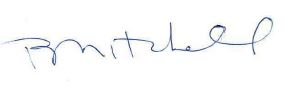 B Mitchell